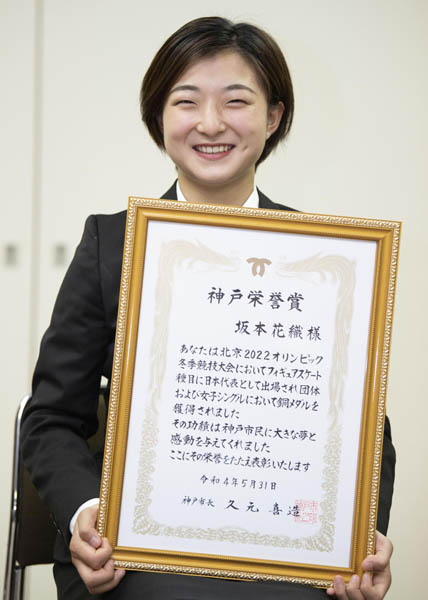 神戸栄誉賞
坂本花織 様
あなたは北京2022オリンピック
冬季競技大会においてフィギュアスケート
種目に日本代表として出場され団体
および女子シングルにおいて銅メダルを
獲得されました
その功績は神戸市民に大きな夢と
感動を与えてくれました
ここにその栄誉をたたえ表彰いたします
令和4年5月31日
神戸市長 久元喜造